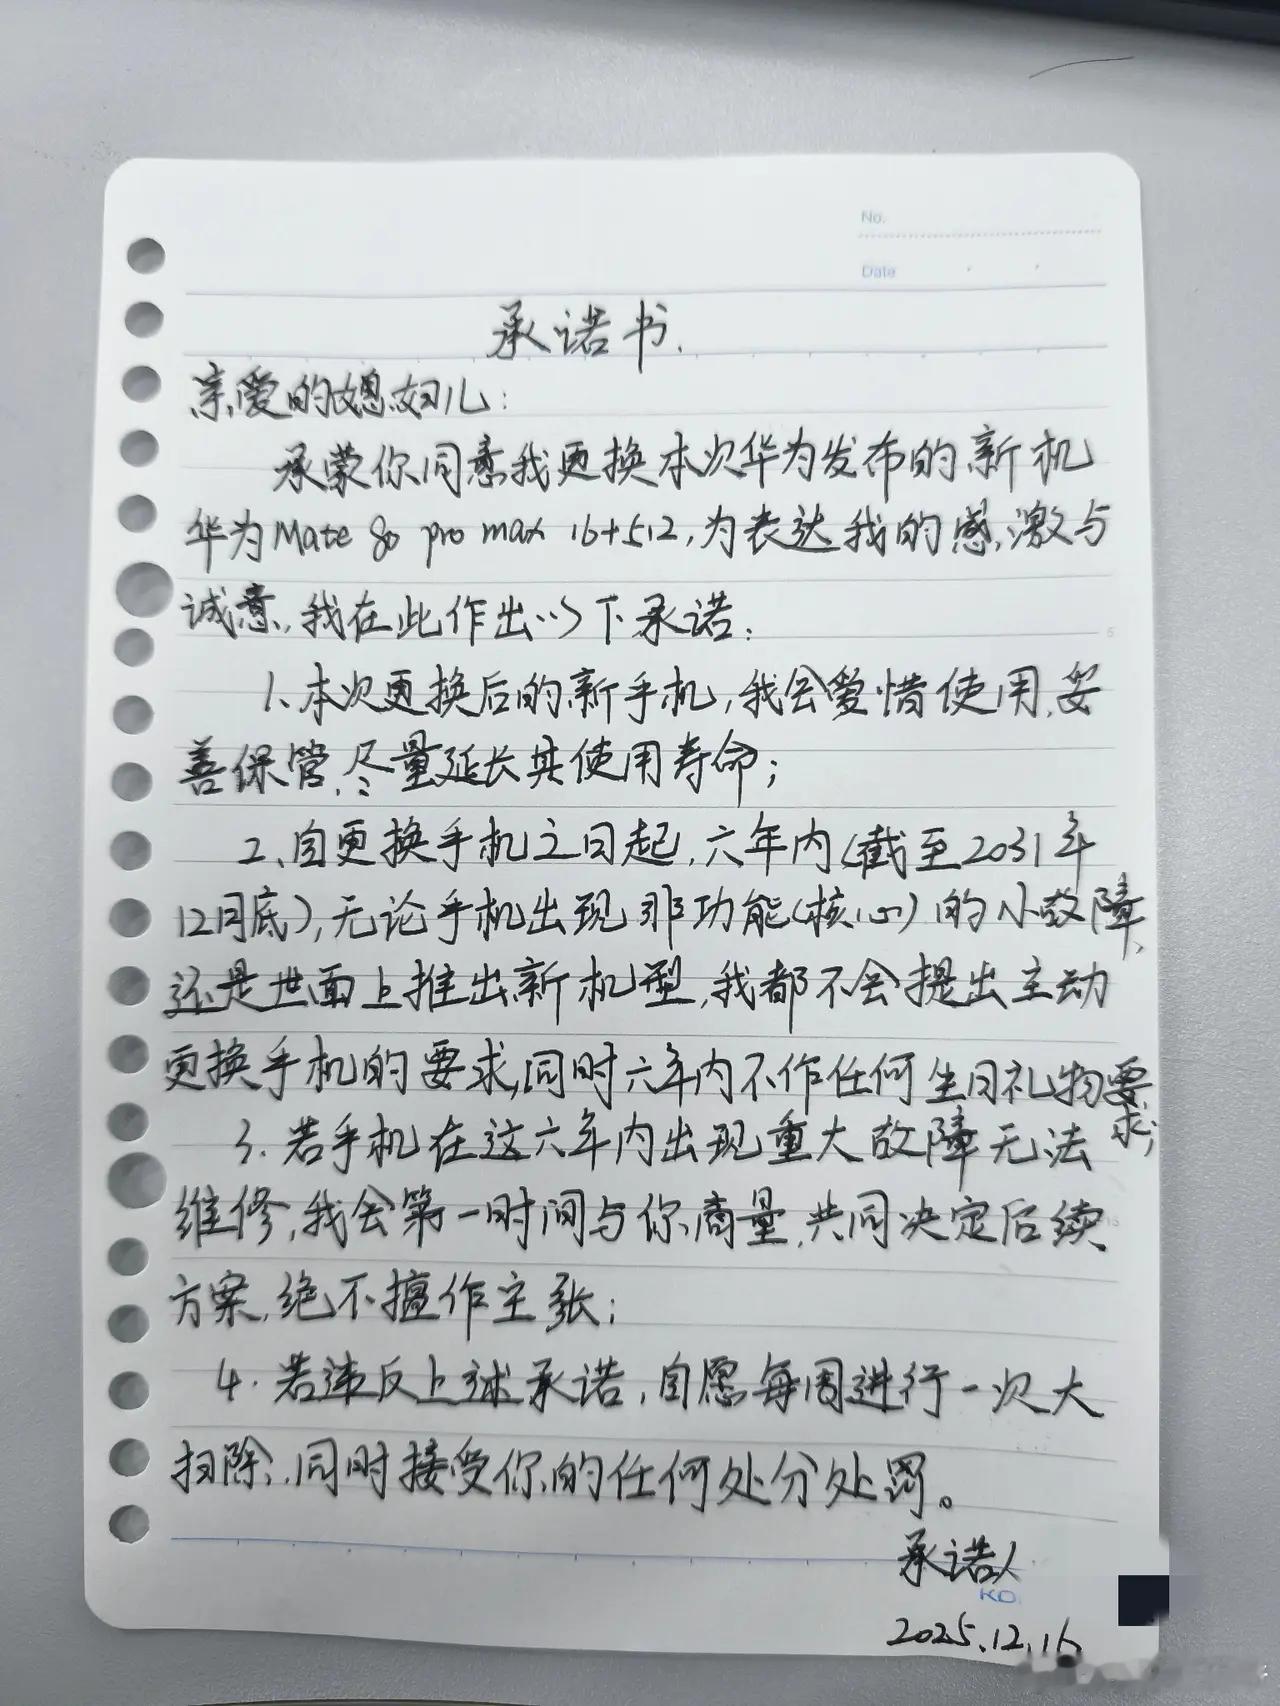 No.
Date
承诺书.
亲爱的媳妇儿：
承蒙你同意我更换本次华为发布的新机
华为Mate 80 pro max 16+512,为表达我的感激与
诚意,我在此作出以下承诺：
1、本次更换后的新手机,我会爱惜使用,妥
善保管,尽量延长其使用寿命；
2、自更换手机之日起,六年内(截至2031年
12月底),无论手机出现非功能(核心)的小故障,
还是世面上推出新机型,我都不会提出主动
更换手机的要求,同时六年内不作任何生日礼物要
求；
3.若手机在这六年内出现重大故障无法
维修,我会第一时间与你商量,共同决定后续
方案,绝不擅作主张；
4.若违反上述承诺,自愿每周进行一次大
扫除,同时接受你的任何处分处罚。
承诺人
KO
2025.12.16